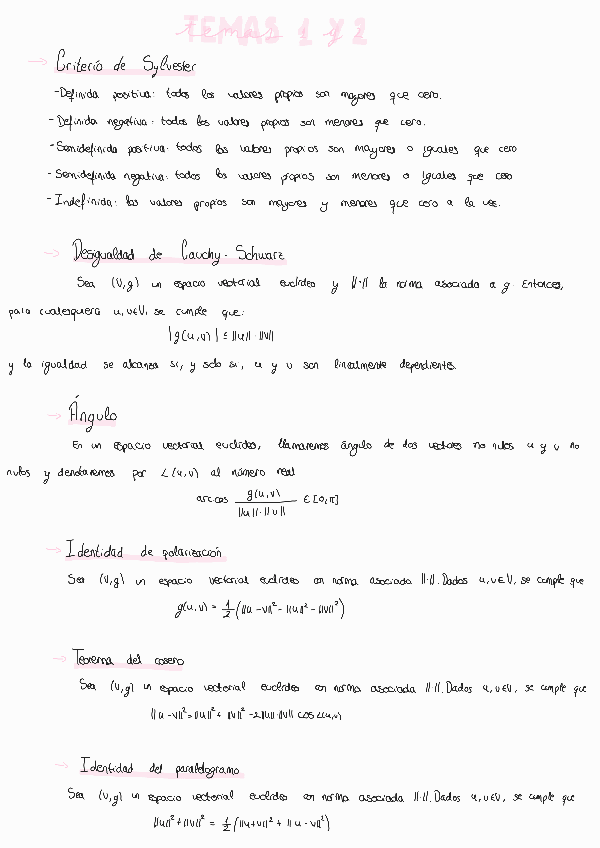 TEMAS 1 Y 2
→ Criterio de Sylvester
- Definida positiva: todos los valores propios son mayores que cero.
- Definida negativa: todos los valores propios son menores que cero.
- Semidefinida positiva: todos los valores propios son mayores o iguales que cero
- Semidefinida negativa: todos los valores propios son menores o iguales que cero
- Indefinida: los valores propios son mayores y menores que cero a la vez.
→ Desigualdad de Cauchy-Schwarz
Sea (V,g) un espacio vectorial euclídeo y ||·|| la norma asociada a g. Entonces,
para cualesquiera u,v∈V, se cumple que:
|g(u,v)| ≤ ||u||·||v||
y la igualdad se alcanza si, y solo si, u y v son linealmente dependientes.
→ Ángulo
En un espacio vectorial euclídeo, llamaremos ángulo de dos vectores no nulos u y v no
nulos y denotaremos por ∠(u,v) al número real
arccos g(u,v) / ||u||·||v|| ∈ [0,π]
→ Identidad de polarización
Sea (V,g) un espacio vectorial euclídeo con norma asociada ||·||. Dados u,v∈V, se cumple que
g(u,v) = 1/2 (||u-v||² - ||u||² - ||v||²)
→ Teorema del coseno
Sea (V,g) un espacio vectorial euclídeo con norma asociada ||·||. Dados u,v∈V, se cumple que
||u-v||² = ||u||² + ||v||² - 2||u||·||v|| cos ∠(u,v)
→ Identidad del paralelogramo
Sea (V,g) un espacio vectorial euclídeo con norma asociada ||·||. Dados u,v∈V, se cumple que
||u||² + ||v||² = 1/2 (||u+v||² + ||u-v||²)